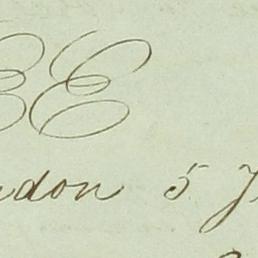 EE
ndon 5 J